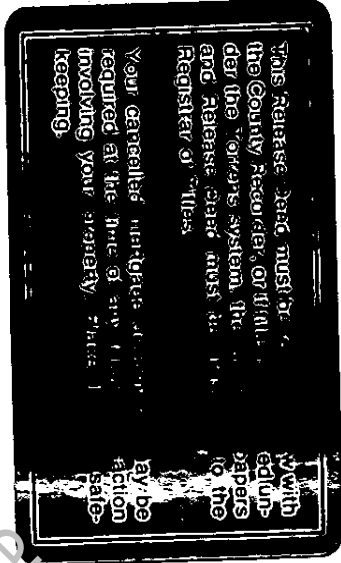 This Release Deed must be with
the County Recorder, or if title un-
der the Torrens system, the papers
and Release Deed must to the
Registrar of Titles.
Your cancelled mortgage may be
required at the time of any action
involving your property. safe-
keeping.